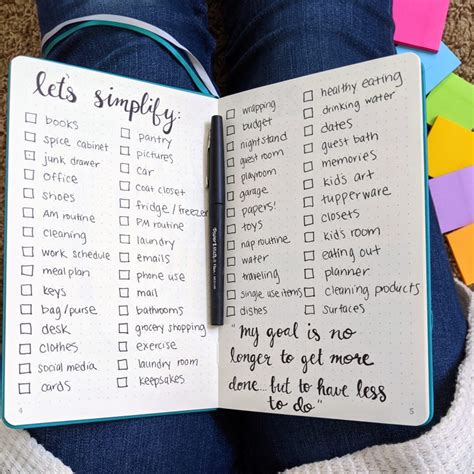 let's simplify:
books
spice cabinet
junk drawer
office
shoes
AM routine
cleaning
work schedule
meal plan
keys
bag/purse
desk
clothes
social media
cards
pantry
pictures
car
coat closet
fridge/freezer
PM routine
laundry
emails
phone use
mail
bathrooms
grocery shopping
exercise
laundry room
keepsakes
4
wrapping
budget
nightstand
guest room
playroom
garage
papers!
toys
nap routine
water
traveling
single use items
dishes
healthy eating
drinking water
dates
guest bath
memories
kids art
tupperware
closets
kids room
eating out
planner
cleaning products
surfaces
"my goal is no
longer to get more
done...but to have less
to do"
5